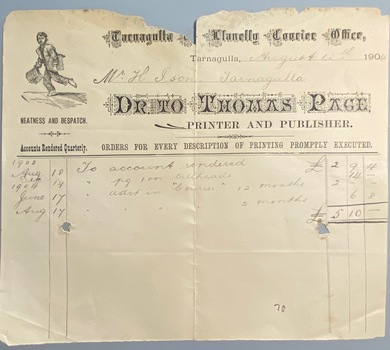 Tarnagulla Llanelly Courier Office,
Tarnagulla, August 190
Mr H Ison Tarnagulla
DR TO THOMAS PAGE
PRINTER AND PUBLISHER.
NEATNESS AND DESPATCH.
Accounts Rendered Quarterly.
ORDERS FOR EVERY DESCRIPTION OF PRINTING PROMPTLY EXECUTED.
Aug 18 To account rendered £ 2 9 4
14 " 1000 billheads 14 -
June 17 " advt in "Courier" 12 months
Aug 17 " " " 2 months 6 8
£ 5 10 -
70